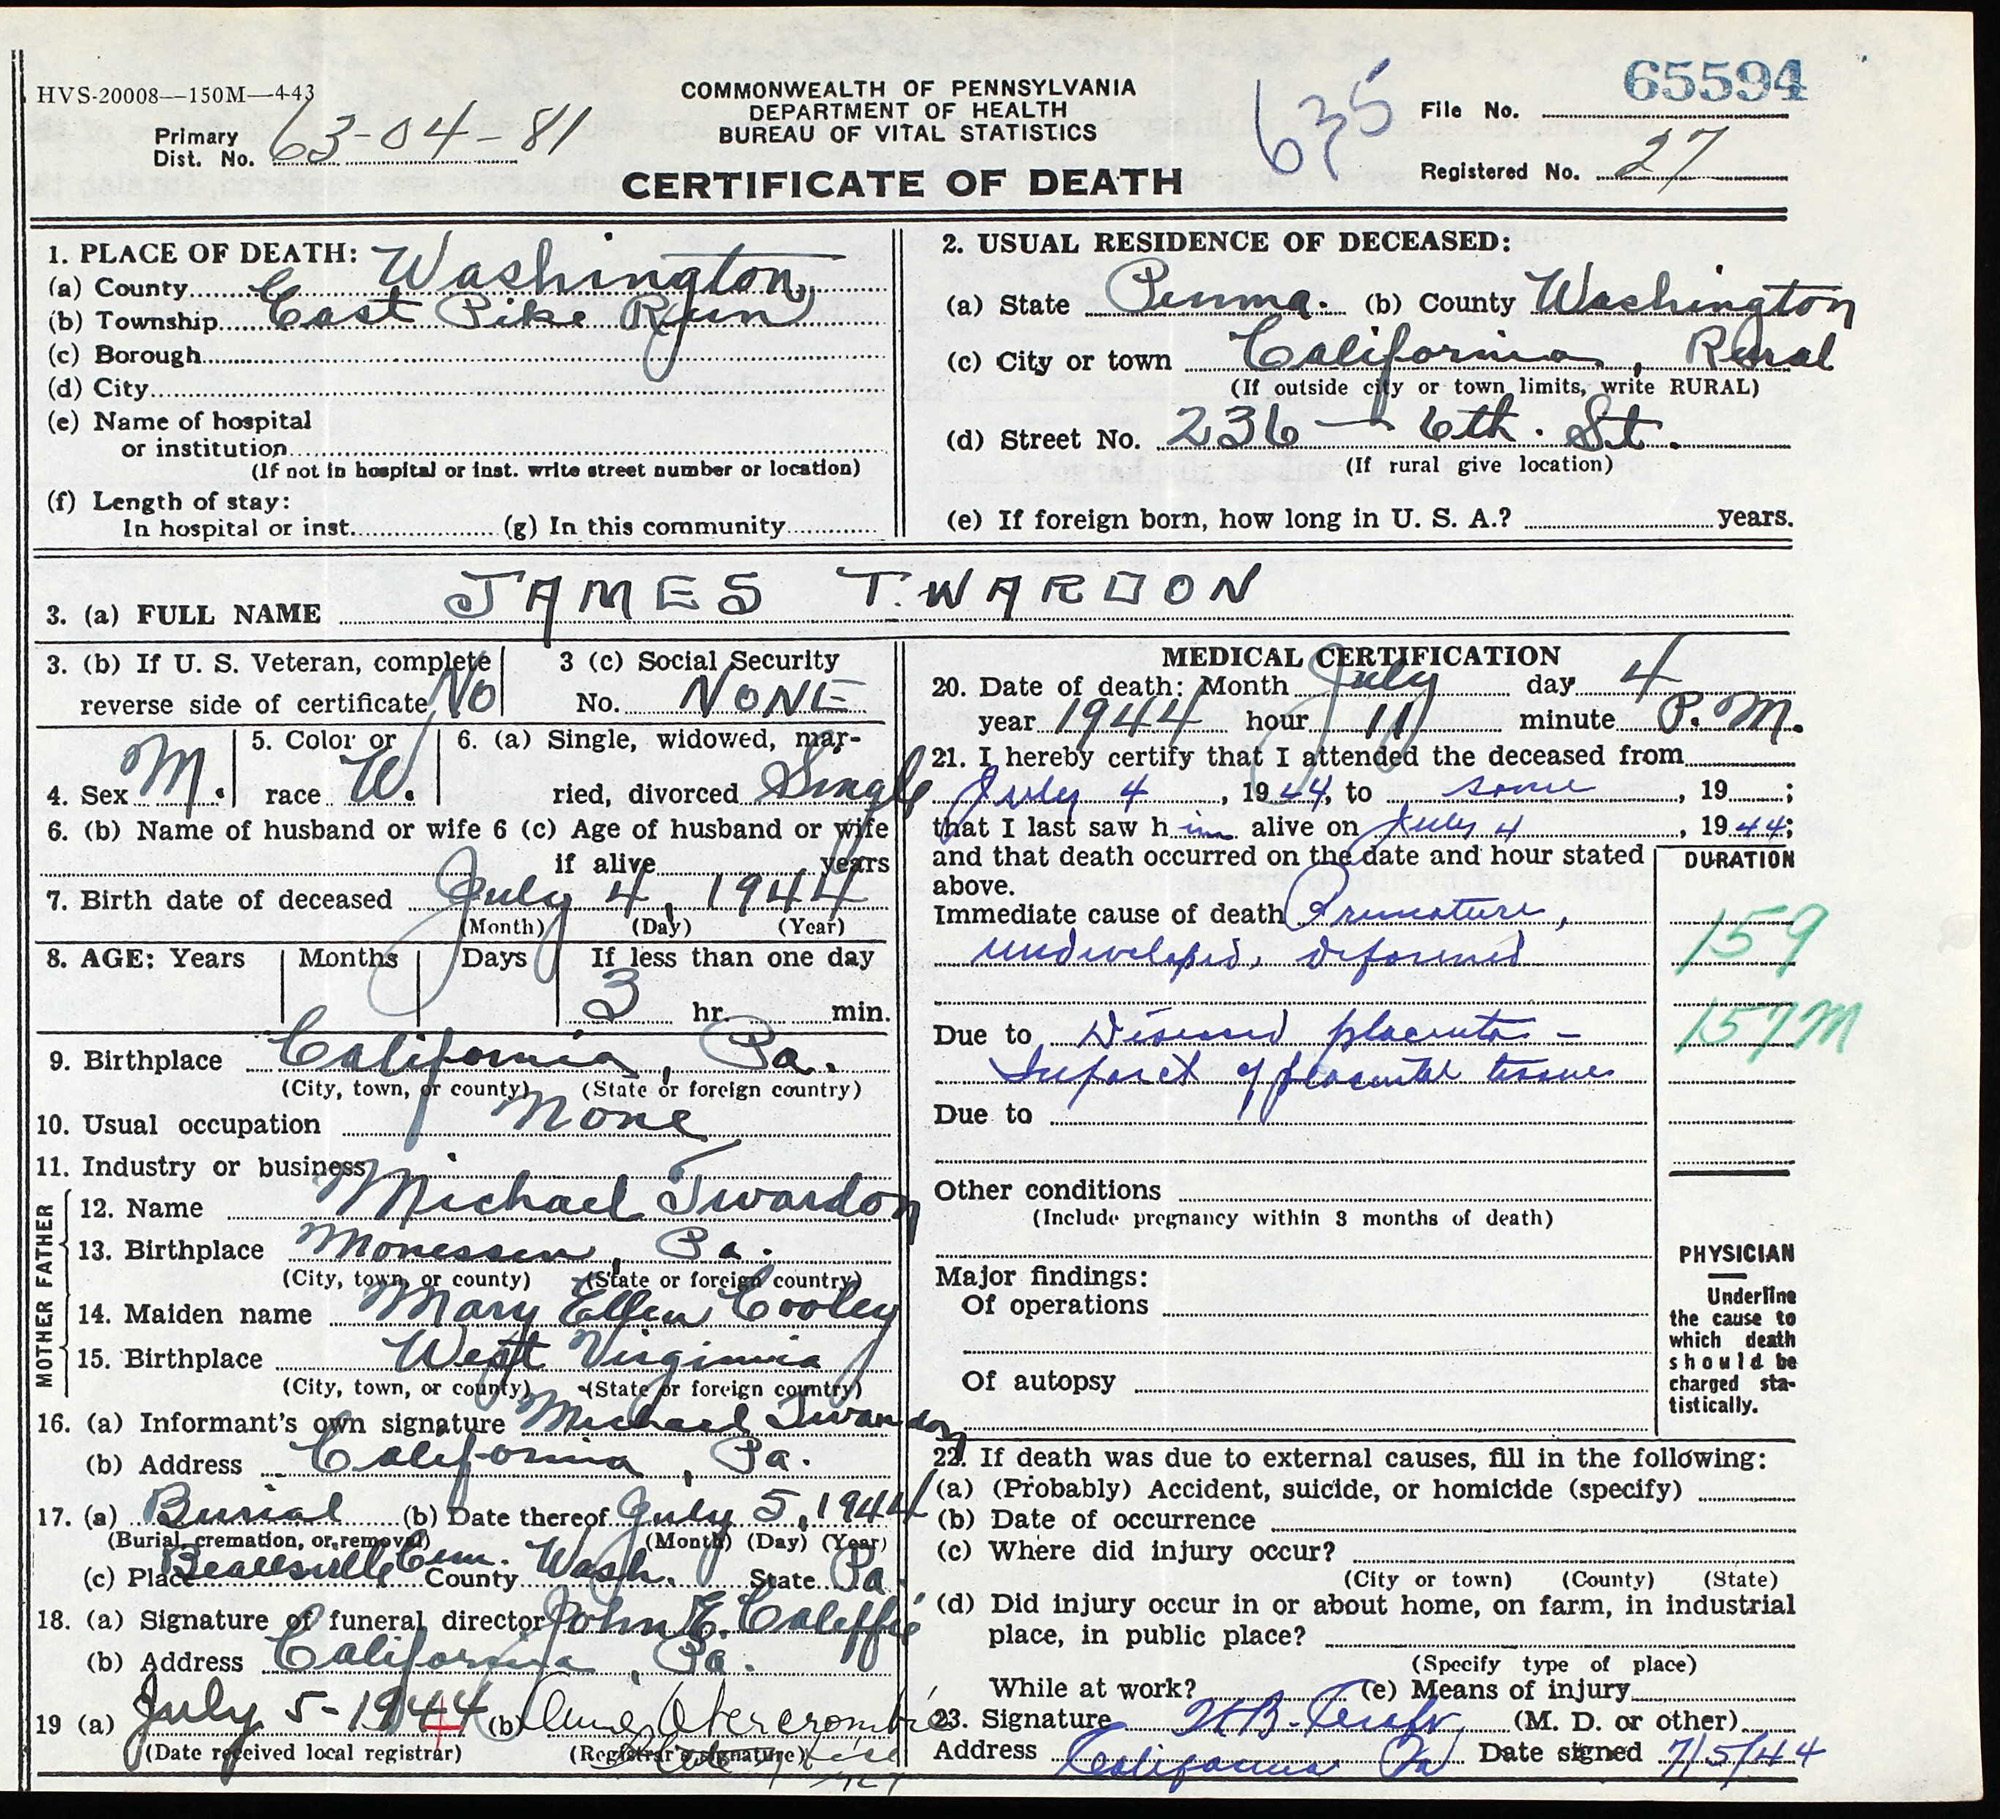 HVS-20008—150M—4-43
COMMONWEALTH OF PENNSYLVANIA
DEPARTMENT OF HEALTH
BUREAU OF VITAL STATISTICS
CERTIFICATE OF DEATH
Primary Dist. No. 63-04-81
635
File No. 65594
Registered No. 27
1. PLACE OF DEATH:
(a) County Washington
(b) Township East Pike Run
(c) Borough
(d) City
(e) Name of hospital
or institution
(If not in hospital or inst. write street number or location)
(f) Length of stay:
In hospital or inst. (g) In this community
2. USUAL RESIDENCE OF DECEASED:
(a) State Penna. (b) County Washington
(c) City or town California, Rural
(If outside city or town limits, write RURAL)
(d) Street No. 236 — 6th. St.
(If rural give location)
(e) If foreign born, how long in U. S. A.? years.
3. (a) FULL NAME JAMES T.WARDON
3. (b) If U. S. Veteran, complete
reverse side of certificate No
3 (c) Social Security
No. NONE
4. Sex M.
5. Color or
race W.
6. (a) Single, widowed, mar-
ried, divorced Single
6. (b) Name of husband or wife
6 (c) Age of husband or wife
if alive years
7. Birth date of deceased July 4, 1944
(Month) (Day) (Year)
8. AGE: Years Months Days If less than one day
3 hr. min.
9. Birthplace California, Pa.
(City, town, or county) (State or foreign country)
10. Usual occupation None
11. Industry or business
FATHER
12. Name Michael Twardon
13. Birthplace Monessen, Pa.
(City, town, or county) (State or foreign country)
MOTHER
14. Maiden name Mary Ellen Cooley
15. Birthplace West Virginia
(City, town, or county) (State or foreign country)
16. (a) Informant's own signature Michael Twardon
(b) Address California, Pa.
17. (a) Burial (b) Date thereof July 5, 1944
(Burial, cremation, or removal) (Month) (Day) (Year)
(c) Place Beallsville Cem. County Wash. State Pa.
18. (a) Signature of funeral director John E. Caleffie
(b) Address California, Pa.
19 (a) July 5-1944 (b) Abercrombie
(Date received local registrar) (Registrar's signature)
MEDICAL CERTIFICATION
20. Date of death: Month July day 4
year 1944 hour 11 minute P.M.
21. I hereby certify that I attended the deceased from
July 4, 1944, to same, 19 ;
that I last saw him alive on July 4, 1944;
and that death occurred on the date and hour stated
above.
DURATION
Immediate cause of death Premature,
undeveloped, deformed
159
Due to Diseased placenta -
Infarct of placental tissues
157M
Due to
Other conditions
(Include pregnancy within 3 months of death)
Major findings:
Of operations
Of autopsy
PHYSICIAN
Underline
the cause to
which death
should be
charged sta-
tistically.
22. If death was due to external causes, fill in the following:
(a) (Probably) Accident, suicide, or homicide (specify)
(b) Date of occurrence
(c) Where did injury occur?
(City or town) (County) (State)
(d) Did injury occur in or about home, on farm, in industrial
place, in public place?
(Specify type of place)
While at work? (e) Means of injury
23. Signature (M. D. or other)
Address California Pa Date signed 7/5/44